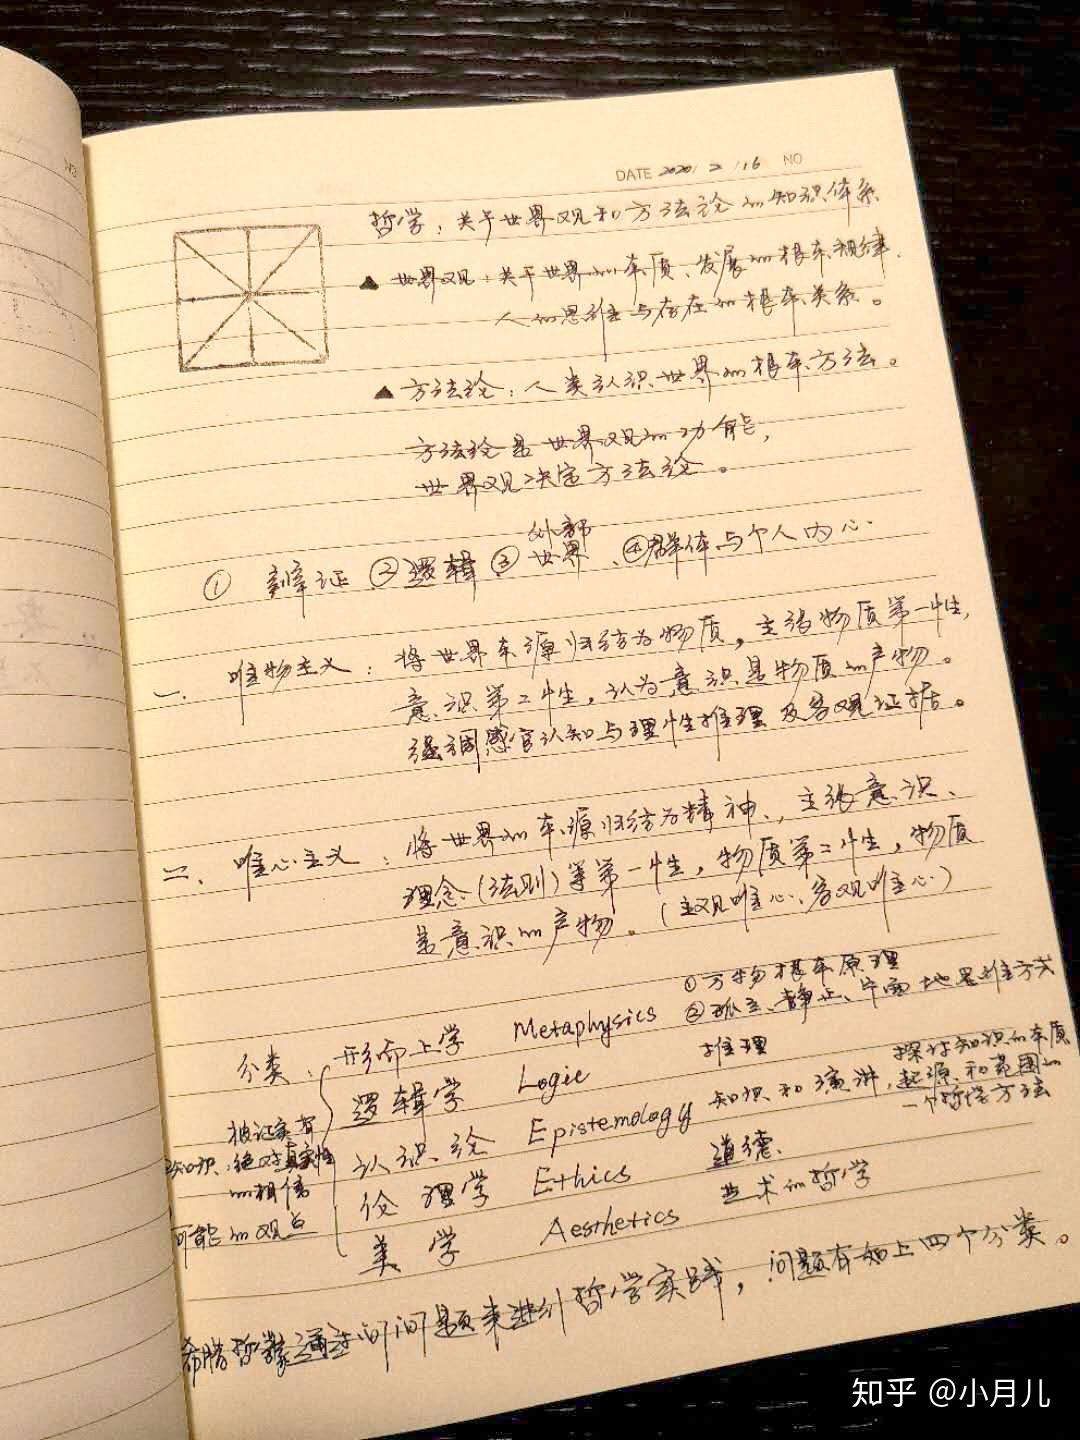 DATE 2020 / 2 / 16 NO
哲学：关于世界观和方法论的知识体系
▲ 世界观：关于世界的本质、发展的根本规律、
人的思维与存在的根本关系。
▲ 方法论：人类认识世界的根本方法。
方法论是世界观的功能，
世界观决定方法论。
① 辩证 ②逻辑 ③外部世界、④群体与个人内心.
一、唯物主义：将世界本源归结为物质，主张物质第一性，
意识第二性，认为意识是物质的产物。
强调感官认知与理性推理及客观证据。
二、唯心主义：将世界的本源归结为精神、主张意识、
理念（法则）等第一性，物质第二性，物质
是意识的产物。（主观唯心、客观唯心）
分类：形而上学 Metaphysics ①万物根本原理
②孤立、静止、片面地思维方式
逻辑学 Logic 推理
认识论 Epistemology 知识和演讲，探讨知识的本质
起源、和范围的
一个哲学方法
伦理学 Ethics 道德、
美学 Aesthetics 艺术的哲学
被证实有
知识：绝对真实性
的相信
可能的观点
希腊哲学家通过问问题来进行哲学实践，问题有如上四个分类。
知乎 @小月儿